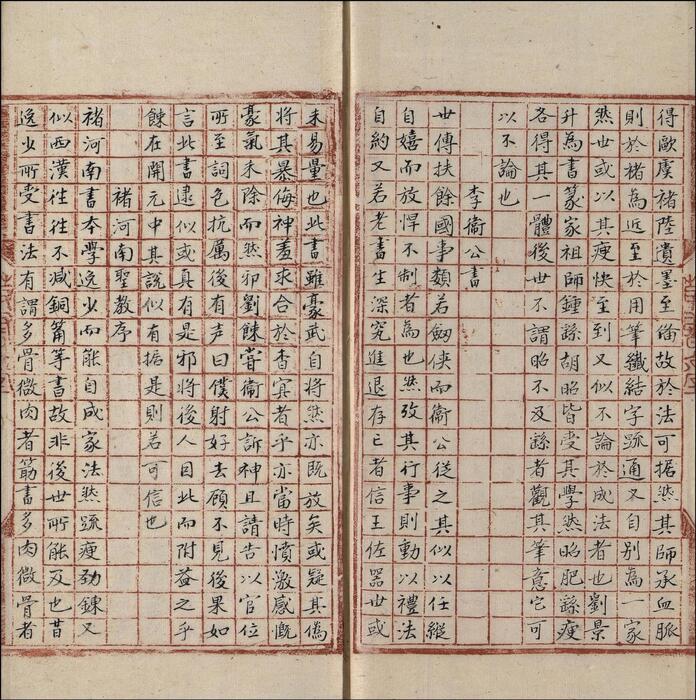 得歐虞褚陸遺墨至備故於法可据然其師承血脈
則於褚為近至於用筆纖結字踈通又自別為一家
然世或以其瘦快至到又似不論於成法者也劉景
升為書篆家祖師鍾繇胡昭皆受其學然昭肥繇瘦
各得其一體後世不謂昭不及繇者觀其筆意它可
以不論也
李衞公書
世傳扶餘國事頪若劒俠而衞公從之其似以任縱
自嬉而放悍不制者為也然攷其行事則動以禮法
自約又若老書生深究進退存亡者信王佐器世或
未易量也此書雖豪武自將然亦既放矣或疑其偽
將其暴侮神羞求合於杳冥者乎亦當時憤激感慨
豪氣未除而然邪劉餗嘗衞公訴神且請告以官位
所至詞色抗厲後有声曰僕射好去顧不見後果如
言此書逮似或真有是邪將後人因此而附益之乎
餗在開元中其說似有据是則若可信也
褚河南聖教序
褚河南書本學逸少而能自成家法然踈瘦勁鍊又
似西漢往往不減銅筩等書故非後世所能及也昔
逸少所受書法有謂多骨微肉者筋書多肉微骨者